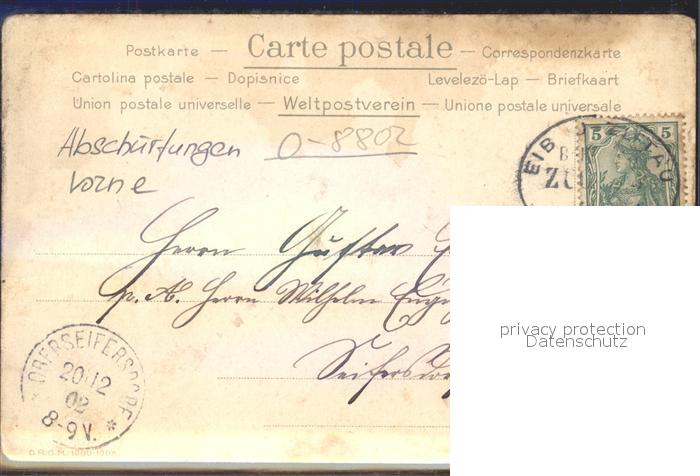 Postkarte — Carte postale — Correspondenzkarte
Cartolina postale — Dopisnice Levelezö-Lap — Briefkaart
Union postale universelle — Weltpostverein — Unione postale universale
Abschürfungen 0-8802
vorne
EIB AU
5 5
ZI
Herrn Gustav
p. A. Herrn Wilhelm
Seifersdorf
privacy protection
Datenschutz
OBERSEIFERSDORF
20 12
02
8-9V.
*
D.R.G.M.